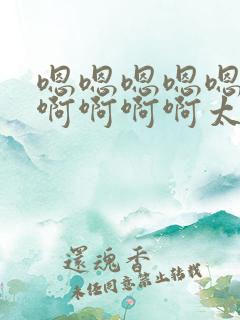 嗯嗯嗯嗯嗯
啊啊啊啊太
還魂香
未经同意禁止转载